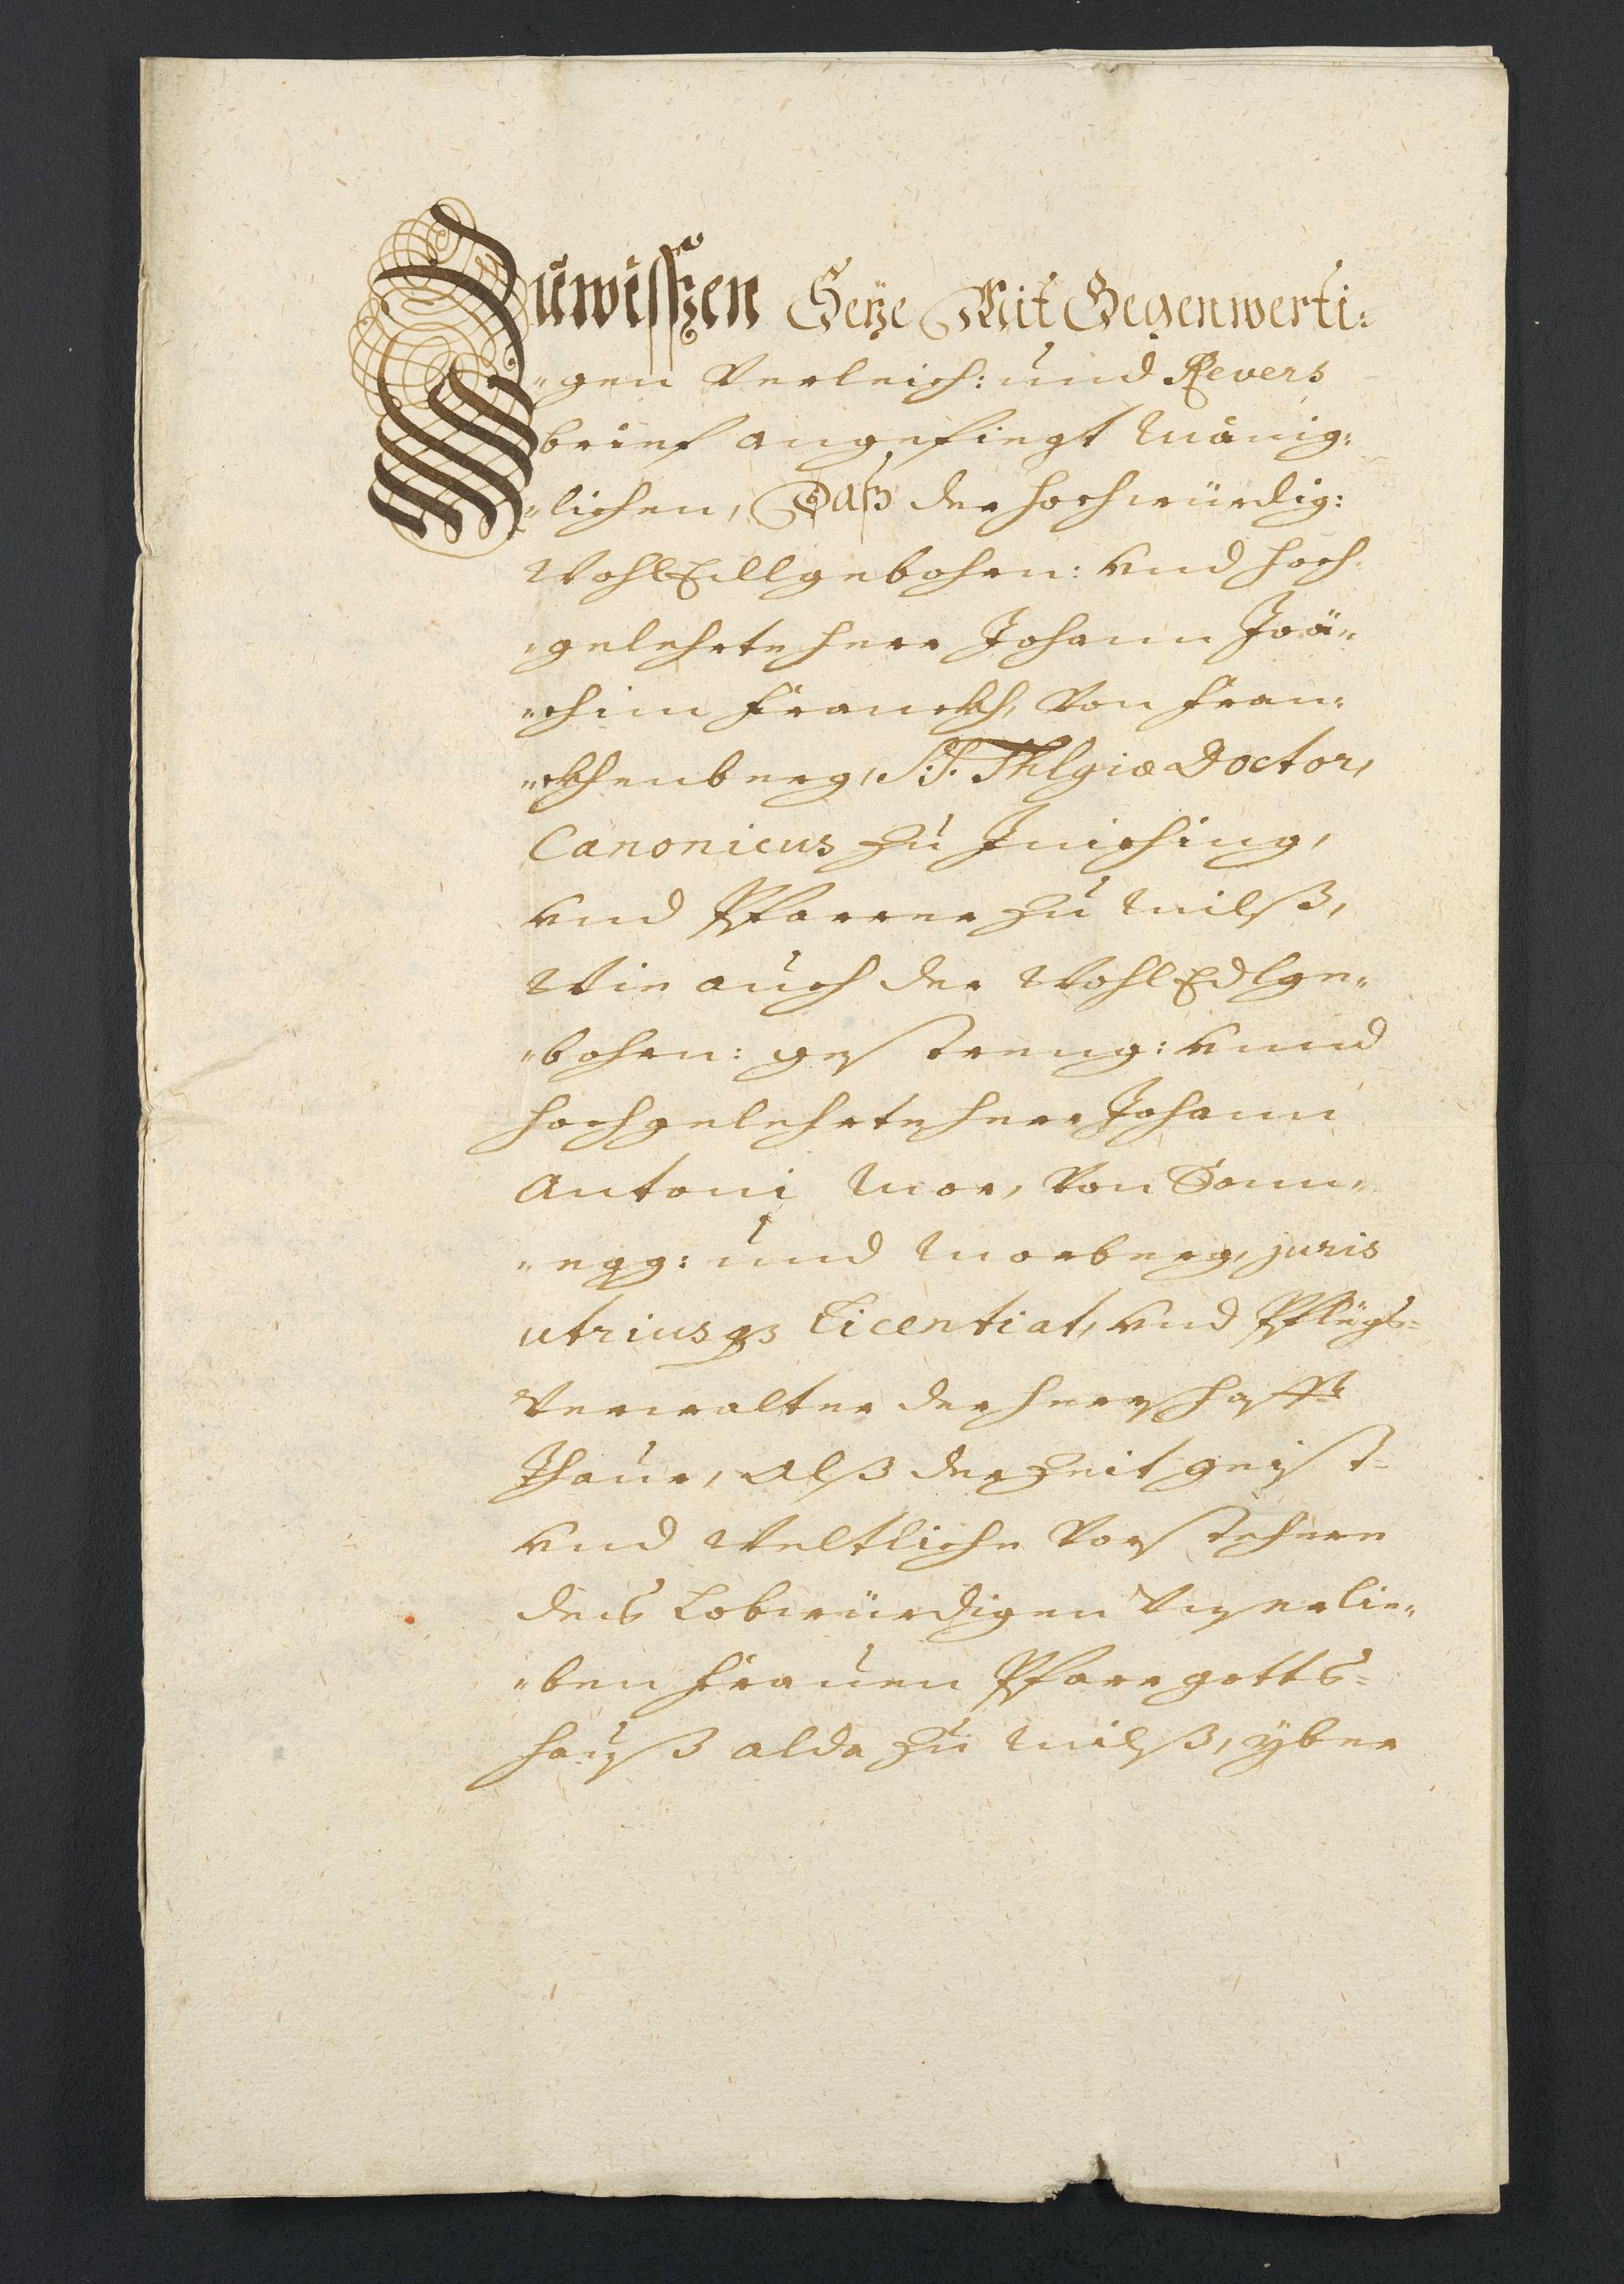 Zuwissen Seÿe Mit Gegenwerti:
„gen Verleich: und Revers
brief angefiegt Mänig:
„lichen, Daß der hochwürdig:
WohlEdlgebohrn: vnd hoch„
„gelehrte herr Johann Joä„
„chim Franckh, von Fran„
„ckhenberg, SS. Thlgiæ Doctor,
Canonicus zu Iniching,
vnd Pfarrer zu Milß,
Wie auch der WohlEdlge„
„bohrn: gestreng: vnnd
hochgelehrte herr Johann
Antoni Mor, von Sonn„
„egg: und Morberg, juris
utriusqȝ Licentiat, vnd Pflegs=
Verwalter der herrschafft
Thaur, Alß der Zeit geist=
vnd Weltliche Vorstehere
deis Lobwürdigen Vnser lie„
„ben Frauen Pfarrgotts=
hauß alda zu Milß, yber